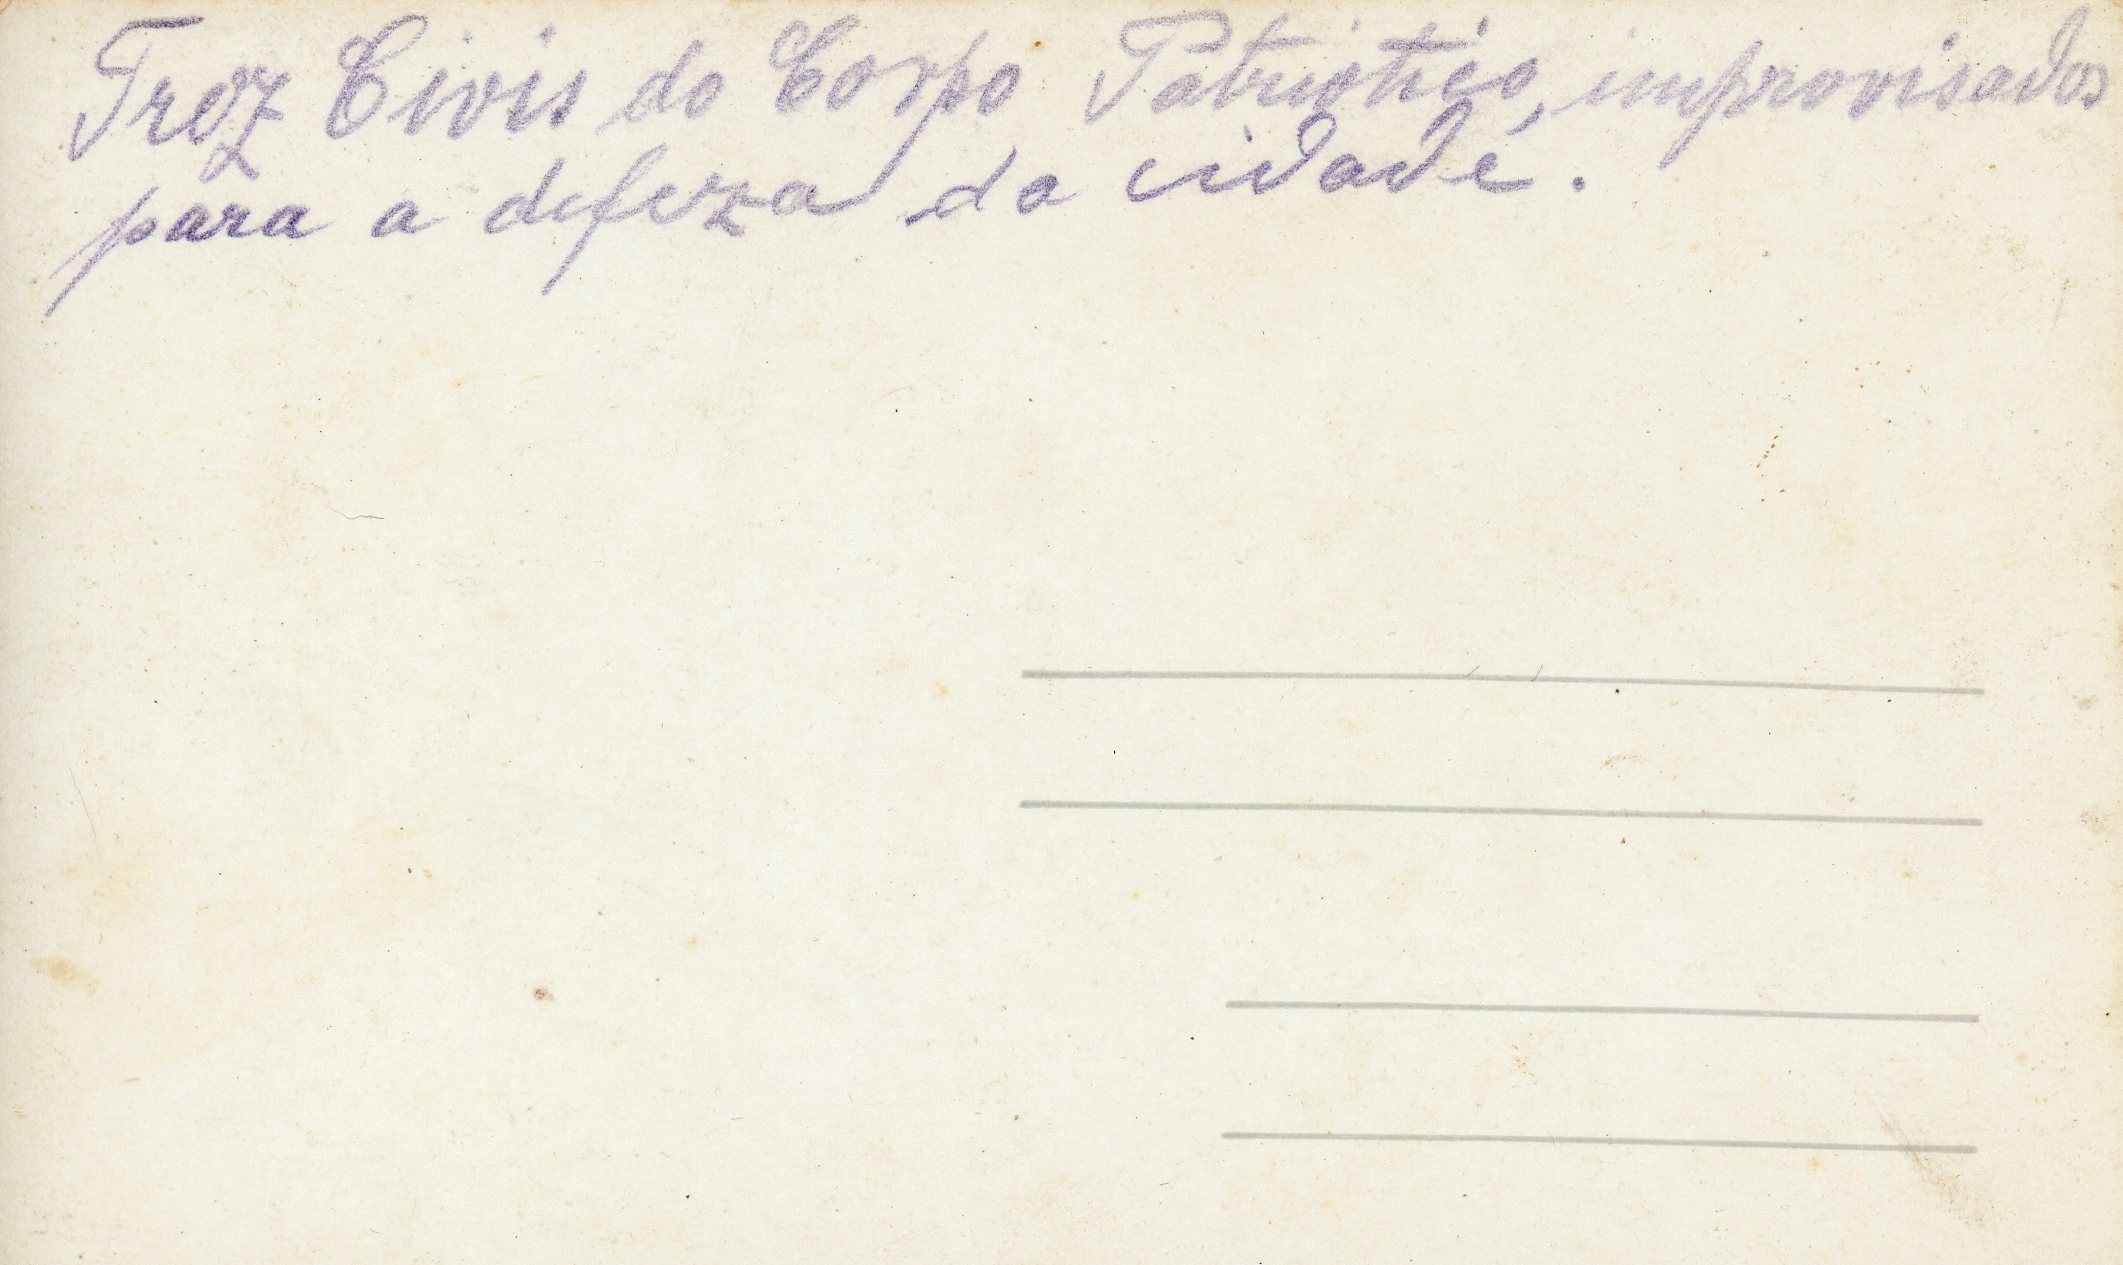 Trez Civis do Corpo Patriotico, improvisados
para a defeza da cidade.